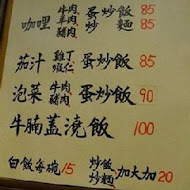 咖哩 牛肉 羊肉 豬肉 蛋炒飯 85
炒麵 85
茄汁 雞丁 蝦仁 蛋炒飯 85
泡菜 牛肉 豬肉 蛋炒飯 90
牛腩蓋澆飯 100
白飯每碗15 炒飯 炒麵 加大加20